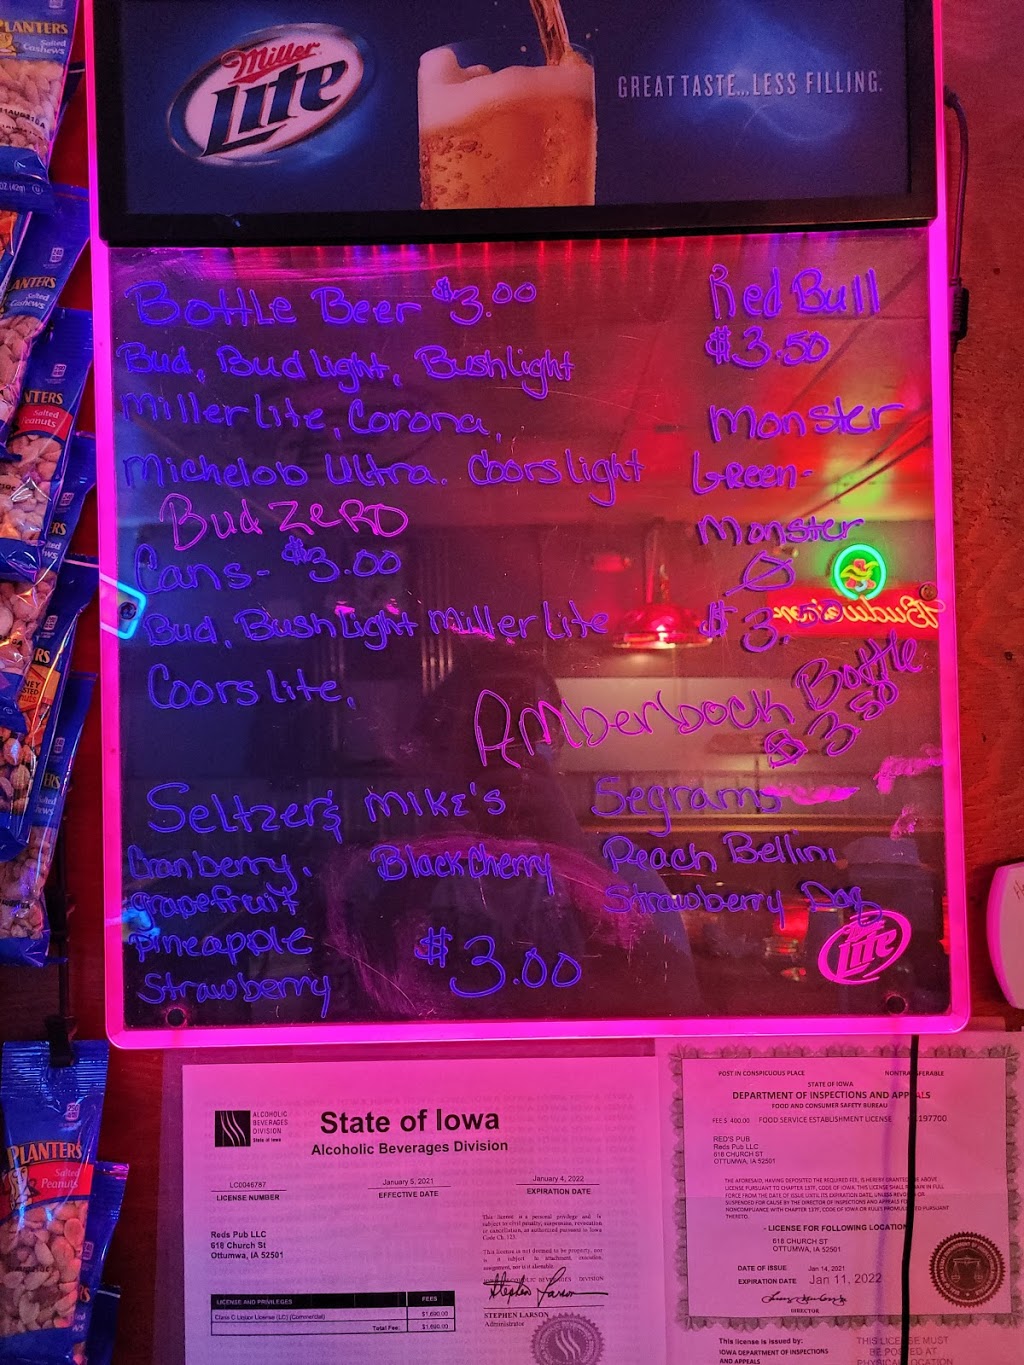 Miller
Lite
GREAT TASTE...LESS FILLING.
PLANTERS
Salted
Cashews
Bottle Beer $3.00
Bud, Bud light, Bushlight
Miller Lite, Corona,
Michelob Ultra. Coors light
Bud ZERO
Cans- $3.00
Bud, Bush Light Miller Lite
Coors lite,
Red Bull
$3.50
Monster
Green-
Monster
Ø
$3.50
Budweiser
Amberbock Bottle
$3.50
Seltzer's Mike's
Cranberry, Black Cherry
grapefruit
Pineapple
Strawberry
$3.00
Segrams
Peach Bellini
Strawberry Daq
Lite
PLANTERS
Salted
Peanuts
ALCOHOLIC
BEVERAGES
DIVISION
State of Iowa
State of Iowa
Alcoholic Beverages Division
LC0046787
LICENSE NUMBER
January 5, 2021
EFFECTIVE DATE
January 4, 2022
EXPIRATION DATE
Reds Pub LLC
618 Church St
Ottumwa, IA 52501
This license is a personal privilege and is
subject to civil penalty, suspension, revocation
or cancellation, as authorized pursuant to Iowa
Code Ch. 123.
This license is not deemed to be property, nor
is it subject to attachment, execution,
assignment, nor is it alienable.
ALCOHOLIC BEVERAGES DIVISION
Stephen Larson
STEPHEN LARSON
Administrator
LICENSE AND PRIVILEGES FEES
Class C Liquor License (LC) (Commercial) $1,690.00
Total Fee: $1,690.00
POST IN CONSPICUOUS PLACE NONTRANSFERABLE
STATE OF IOWA
DEPARTMENT OF INSPECTIONS AND APPEALS
FOOD AND CONSUMER SAFETY BUREAU
FEE $ 400.00 FOOD SERVICE ESTABLISHMENT LICENSE 197700
RED'S PUB
Reds Pub LLC
618 CHURCH ST
OTTUMWA, IA 52501
THE AFORESAID, HAVING DEPOSITED THE REQUIRED FEE, IS HEREBY GRANTED THE ABOVE
LICENSE PURSUANT TO CHAPTER 137F, CODE OF IOWA. THIS LICENSE SHALL REMAIN IN FULL
FORCE FROM THE DATE OF ISSUE UNTIL ITS EXPIRATION DATE, UNLESS REVOKED OR
SUSPENDED FOR CAUSE BY THE DIRECTOR OF INSPECTIONS AND APPEALS FOR
NONCOMPLIANCE WITH CHAPTER 137F, CODE OF IOWA OR RULES PROMULGATED PURSUANT
THERETO.
- LICENSE FOR FOLLOWING LOCATION
618 CHURCH ST
OTTUMWA, IA 52501
DATE OF ISSUE Jan 14, 2021
EXPIRATION DATE Jan 11, 2022
DIRECTOR
This license is issued by:
IOWA DEPARTMENT OF INSPECTIONS
AND APPEALS
THIS LICENSE MUST
BE POSTED AT
PHYSICAL LOCATION